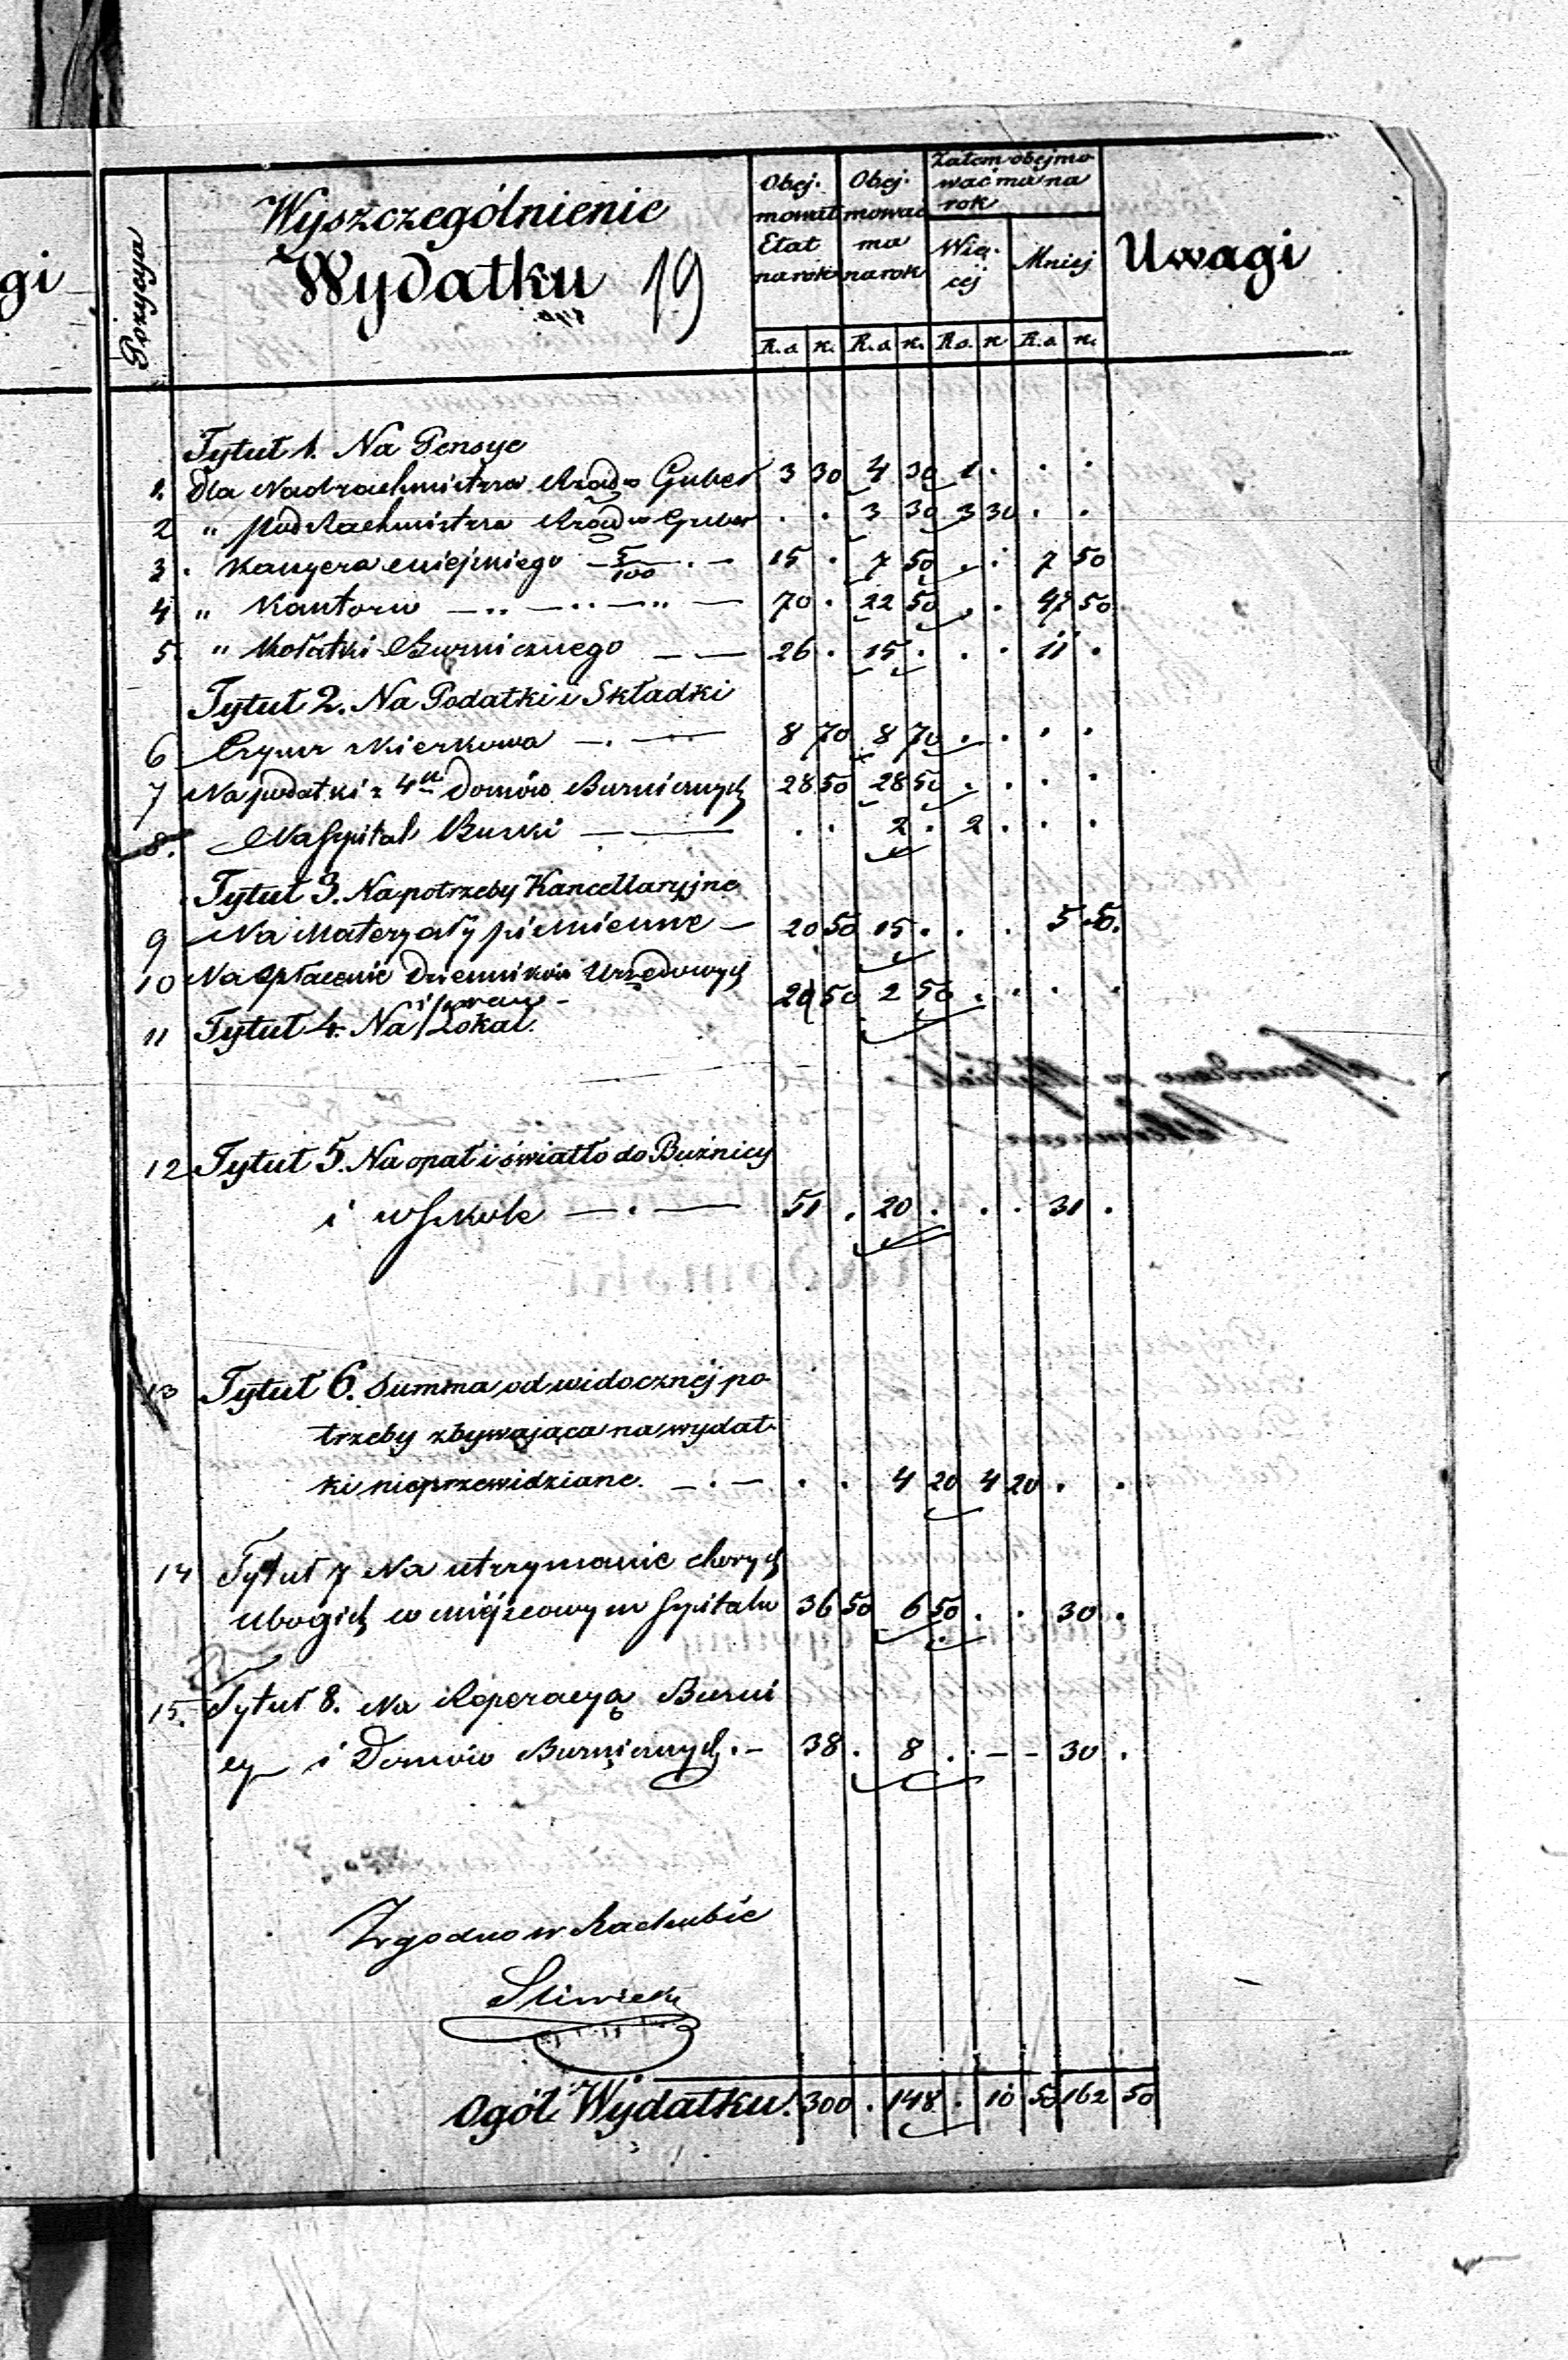 gi
Pozycya
Wyszczególnienie
Wydatku 19
Obej-
mował
Etat
na rok
Obej-
mować
ma
na rok
Zatem obejmo
wać ma na
rok
Wię-
cej
Mniej
Uwagi
R.s. k. R.s. k. R.s. k. R.s. k.
Tytuł 1. Na Pensye
1. Dla Nadrachmistrza Rządu Guber 3 30 4 30 1 . . .
2 " Podrachmistrza Rządu Guber . . 3 30 3 30 . .
3 . Kassyera miejskiego — 5/100 . — 15 . 7 50 . . 7 50
4 " Kantoru — .. — .. — .. — 70 . 22 50 . . 47 50
5. " Bużnicznego — — 26 . 15 . . . 11 .
Tytuł 2. Na Podatki i Składki
6 Czynsz — . — 8 70 8 70 . . . .
7 Na podatki z 4ch Domów Bużnicznych 28 50 28 50 . . . .
8. Na Szpital — — . . 2 . 2 . . .
Tytuł 3. Na potrzeby Kancellaryjne
9 Na Materyały piśmienne — 20 50 15 . . . 5 50.
10 Na opłacenie Dzienników Urzędowych
i spraw -
11 Tytuł 4. Na Lokal. 2 50 2 50 . . . .
12 Tytuł 5. Na opał i światło do Bużnicy
i w Szkole — . — 51 . 20 . . . 31 .
13 Tytuł 6. Summa od widocznej po
trzeby zbywająca na wydat-
ki nieprzewidziane. — . — . . 4 20 4 20 . .
14 Tytuł 7 Na utrzymanie chorych
ubogich w miejscowym Szpitalu 36 50 6 50 . . 30 .
15. Tytuł 8. Na Reperacyą Bużni
cy i Domów Bużnicznych . — 38 . 8 . . — — 30 .
Zgodno w Rachubie
Sliwicki
Ogół Wydatku. 300 . 148 . 10 50 162 50